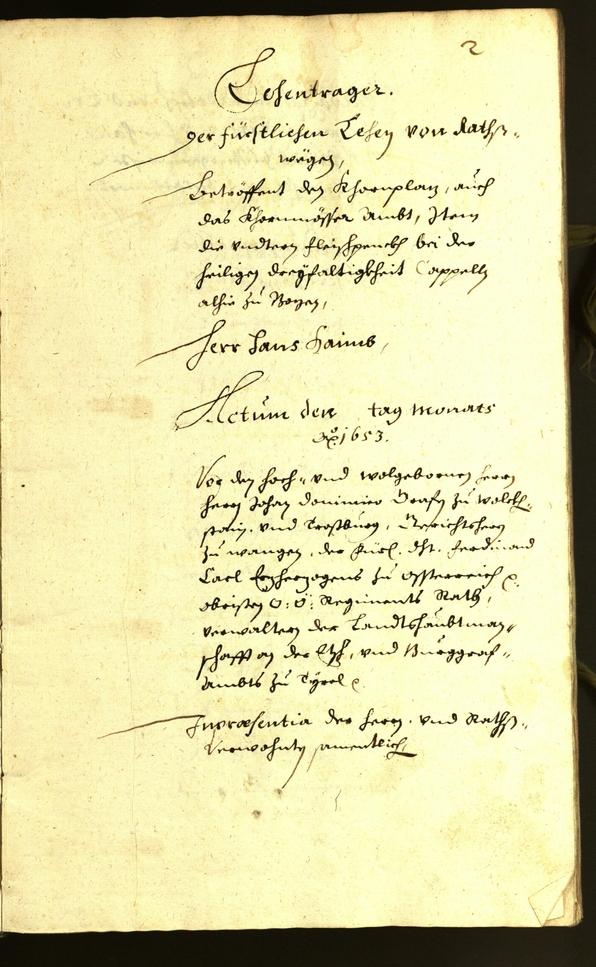 2
Lehentrager.
Der fürstlichen Lehen von Raths-
wegen,
Betröffent den Khornplaz, auch
das Khornmösser Ambt, Item
die undtern Fleischpenckh bei der
heiligen dreÿfaltigkheit Cappelln
alhie zu Bozen,
Herr Hans Haimb,
Actum den tag monats
Ao 1653.
Vor den hoch- und wolgebornen herrn
herrn Johan Dominico Grafn zu Wolckh-
stain und Trostburg, Gerichtsherrn
zu Wangen, der Fürl. Dht. Ferdinand
Carl Erzherzogens zu Össterreich
obristen O: Ö: Regiments Rath,
verwaltern der Landtshaubtman-
schafft an der Etsch, und Burggraf-
Ambts zu Tÿrol
In præsentia der herrn und Raths-
Verwohnten samentlich